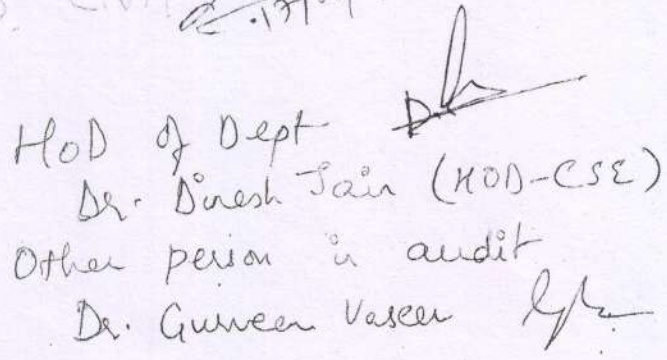 HoD of Dept
Dr. Dinesh Jain (HOD-CSE)
Other person in audit
Dr. Gurveen Vaseer